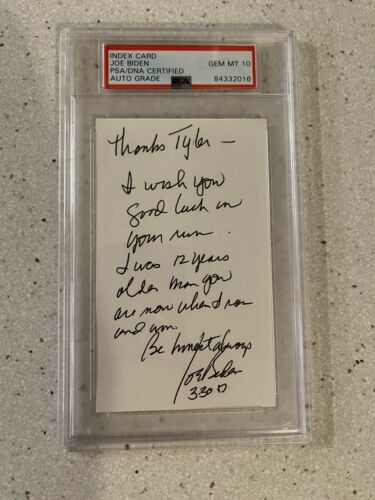 INDEX CARD
JOE BIDEN
PSA/DNA CERTIFIED
AUTO GRADE
GEM MT 10
84332016
PSA
Thanks Tyler —
I wish you
Good luck in
your run.
I was 12 years
older than you
are now when I ran
and won.
Be honest always
Joe Biden